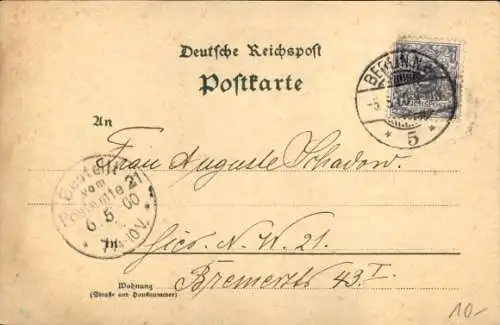 Deutsche Reichspost
Postkarte
BERLIN. N.
-5.5.00
* 5 *
An
Frau Auguste Schadow.
Bestellt
vom
Postamte 21
6. 5. 00
in
Hier. N. W. 21.
Bremerstr 43 I.
Wohnung
(Straße und Hausnummer)
10-